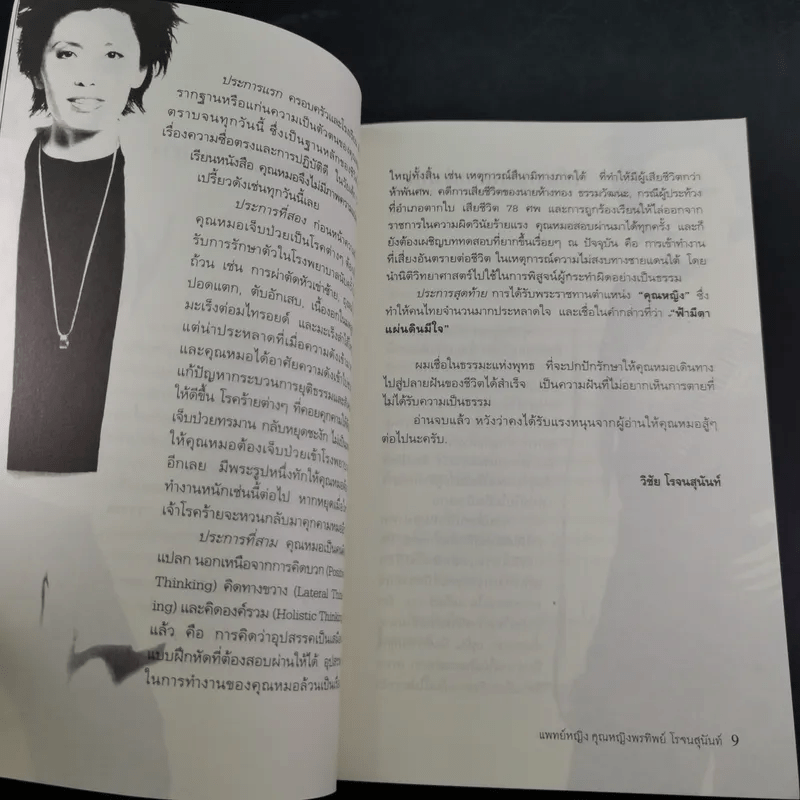 ประการแรก ครอบครัวและโรงเรียน
รากฐานหรือแก่นความเป็นตัวตนของคุณ
ตราบจนทุกวันนี้ ซึ่งเป็นฐานหลักของ
เรื่องความซื่อตรงและการปฏิบัติดี ในวัน
เรียนหนังสือ คุณหมอจึงไม่มีภาพความ
เปรี้ยวดังเช่นทุกวันนี้เลย
ประการที่สอง ก่อนหน้าความ
คุณหมอเจ็บป่วยเป็นโรคต่างๆ ต้อง
รับการรักษาตัวในโรงพยาบาลนับครั้ง
ถ้วน เช่น การผ่าตัดหัวเข่าซ้าย,
ปอดแตก, ตับอักเสบ, เนื้องอกในมดลูก
มะเร็งต่อมไทรอยด์ และมะเร็งลำไส้
แต่น่าประหลาดที่เมื่อความดังเข้ามา
และคุณหมอได้อาศัยความดังเข้าไป
แก้ปัญหากระบวนการยุติธรรมและ
ให้ดีขึ้น โรคร้ายต่างๆ ที่คอยคุกคามให้
เจ็บป่วยทรมาน กลับหยุดชะงัก ไม่
ให้คุณหมอต้องเจ็บป่วยเข้าโรงพยาบาล
อีกเลย มีพระรูปหนึ่งทักให้คุณหมอ
ทำงานหนักเช่นนี้ต่อไป หากหยุดเมื่อไ
เจ้าโรคร้ายจะหวนกลับมาคุกคามหมอ
ประการที่สาม คุณหมอเป็นคน
แปลก นอกเหนือจากการคิดบวก (Positi
Thinking) คิดทางขวาง (Lateral Thin
ing) และคิดองค์รวม (Holistic Thinking
แล้ว คือ การคิดว่าอุปสรรคเป็น
แบบฝึกหัดที่ต้องสอบผ่านให้ได้ อุปส
ในการทำงานของคุณหมอล้วนเป็น
ใหญ่ทั้งสิ้น เช่น เหตุการณ์สึนามิทางภาคใต้ ที่ทำให้มีผู้เสียชีวิตกว่า
ห้าพันศพ, คดีการเสียชีวิตของนายห้างทอง ธรรมวัฒนะ, กรณีผู้ประท้วง
ที่อำเภอตากใบ เสียชีวิต 78 ศพ และการถูกร้องเรียนให้ไล่ออกจาก
ราชการในความผิดวินัยร้ายแรง คุณหมอสอบผ่านมาได้ทุกครั้ง และก็
ยังต้องเผชิญบททดสอบที่ยากขึ้นเรื่อยๆ ณ ปัจจุบัน คือ การเข้าทำงาน
ที่เสี่ยงอันตรายต่อชีวิต ในเหตุการณ์ความไม่สงบทางชายแดนใต้ โดย
นำนิติวิทยาศาสตร์ไปใช้ในการพิสูจน์ผู้กระทำผิดอย่างเป็นธรรม
ประการสุดท้าย การได้รับพระราชทานตำแหน่ง “คุณหญิง” ซึ่ง
ทำให้คนไทยจำนวนมากประหลาดใจ และเชื่อในคำกล่าวที่ว่า “ฟ้ามีตา
แผ่นดินมีใจ”
ผมเชื่อในธรรมะแห่งพุทธ ที่จะปกปักรักษาให้คุณหมอเดินทาง
ไปสู่ปลายฝันของชีวิตได้สำเร็จ เป็นความฝันที่ไม่อยากเห็นการตายที่
ไม่ได้รับความเป็นธรรม
อ่านจบแล้ว หวังว่าคงได้รับแรงหนุนจากผู้อ่านให้คุณหมอสู้ๆ
ต่อไปนะครับ
วิชัย โรจนสุนันท์
แพทย์หญิง คุณหญิงพรทิพย์ โรจนสุนันท์ 9